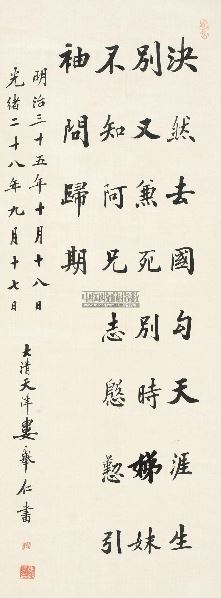 決然去國句天涯生
別又兼死別時娣妹
不知阿兄志慇懃引
袖問歸期
明治三十五年十月十八日
光緒二十八年九月十七日
大清天津婁犖仁書